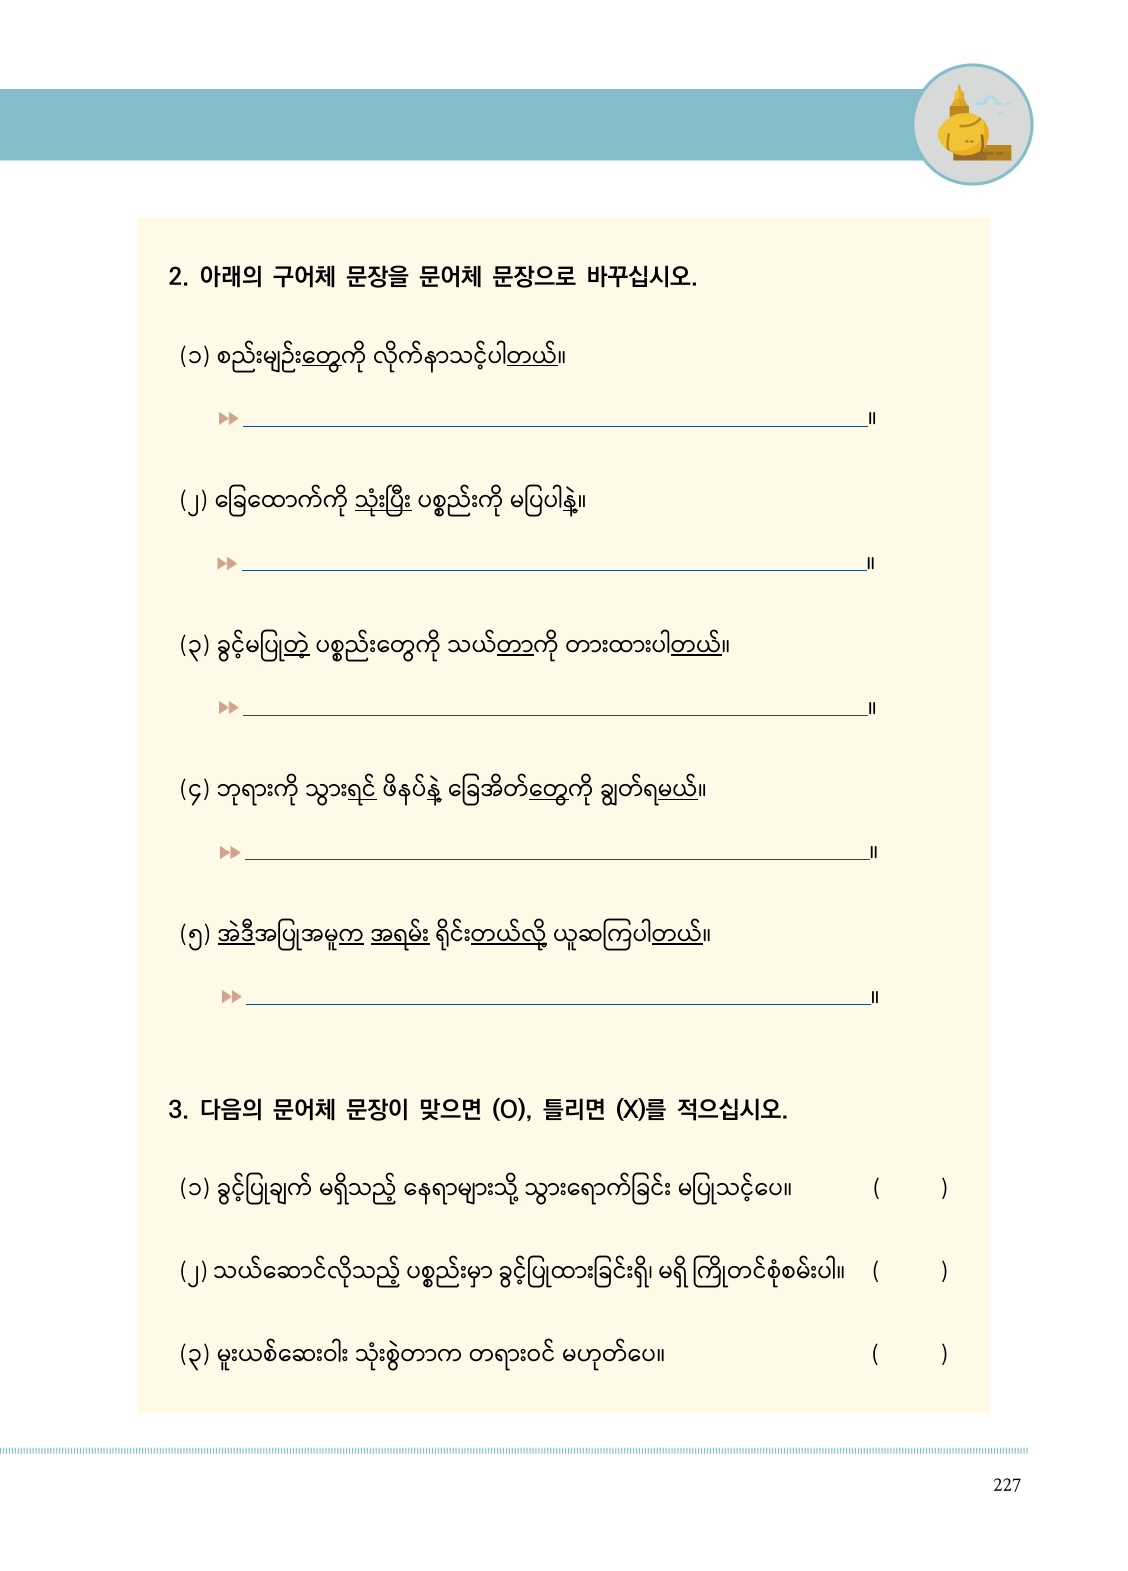 2. 아래의 구어체 문장을 문어체 문장으로 바꾸십시오.
(၁) စည်းမျဉ်းတွေကို လိုက်နာသင့်ပါတယ်။
။
(၂) ခြေထောက်ကို သုံးပြီး ပစ္စည်းကို မပြပါနဲ့။
။
(၃) ခွင့်မပြုတဲ့ ပစ္စည်းတွေကို သယ်တာကို တားထားပါတယ်။
။
(၄) ဘုရားကို သွားရင် ဖိနပ်နဲ့ ခြေအိတ်တွေကို ချွတ်ရမယ်။
။
(၅) အဲဒီအပြုအမူက အရမ်း ရိုင်းတယ်လို့ ယူဆကြပါတယ်။
။
3. 다음의 문어체 문장이 맞으면 (O), 틀리면 (X)를 적으십시오.
(၁) ခွင့်ပြုချက် မရှိသည့် နေရာများသို့ သွားရောက်ခြင်း မပြုသင့်ပေ။ ( )
(၂) သယ်ဆောင်လိုသည့် ပစ္စည်းမှာ ခွင့်ပြုထားခြင်းရှိ၊ မရှိ ကြိုတင်စုံစမ်းပါ။ ( )
(၃) မူးယစ်ဆေးဝါး သုံးစွဲတာက တရားဝင် မဟုတ်ပေ။ ( )
227